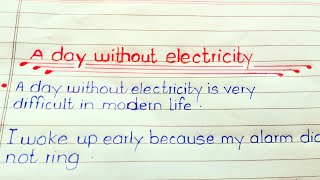 A day without electricity
A day without electricity is very
difficult in modern life.
I woke up early because my alarm did
not ring.